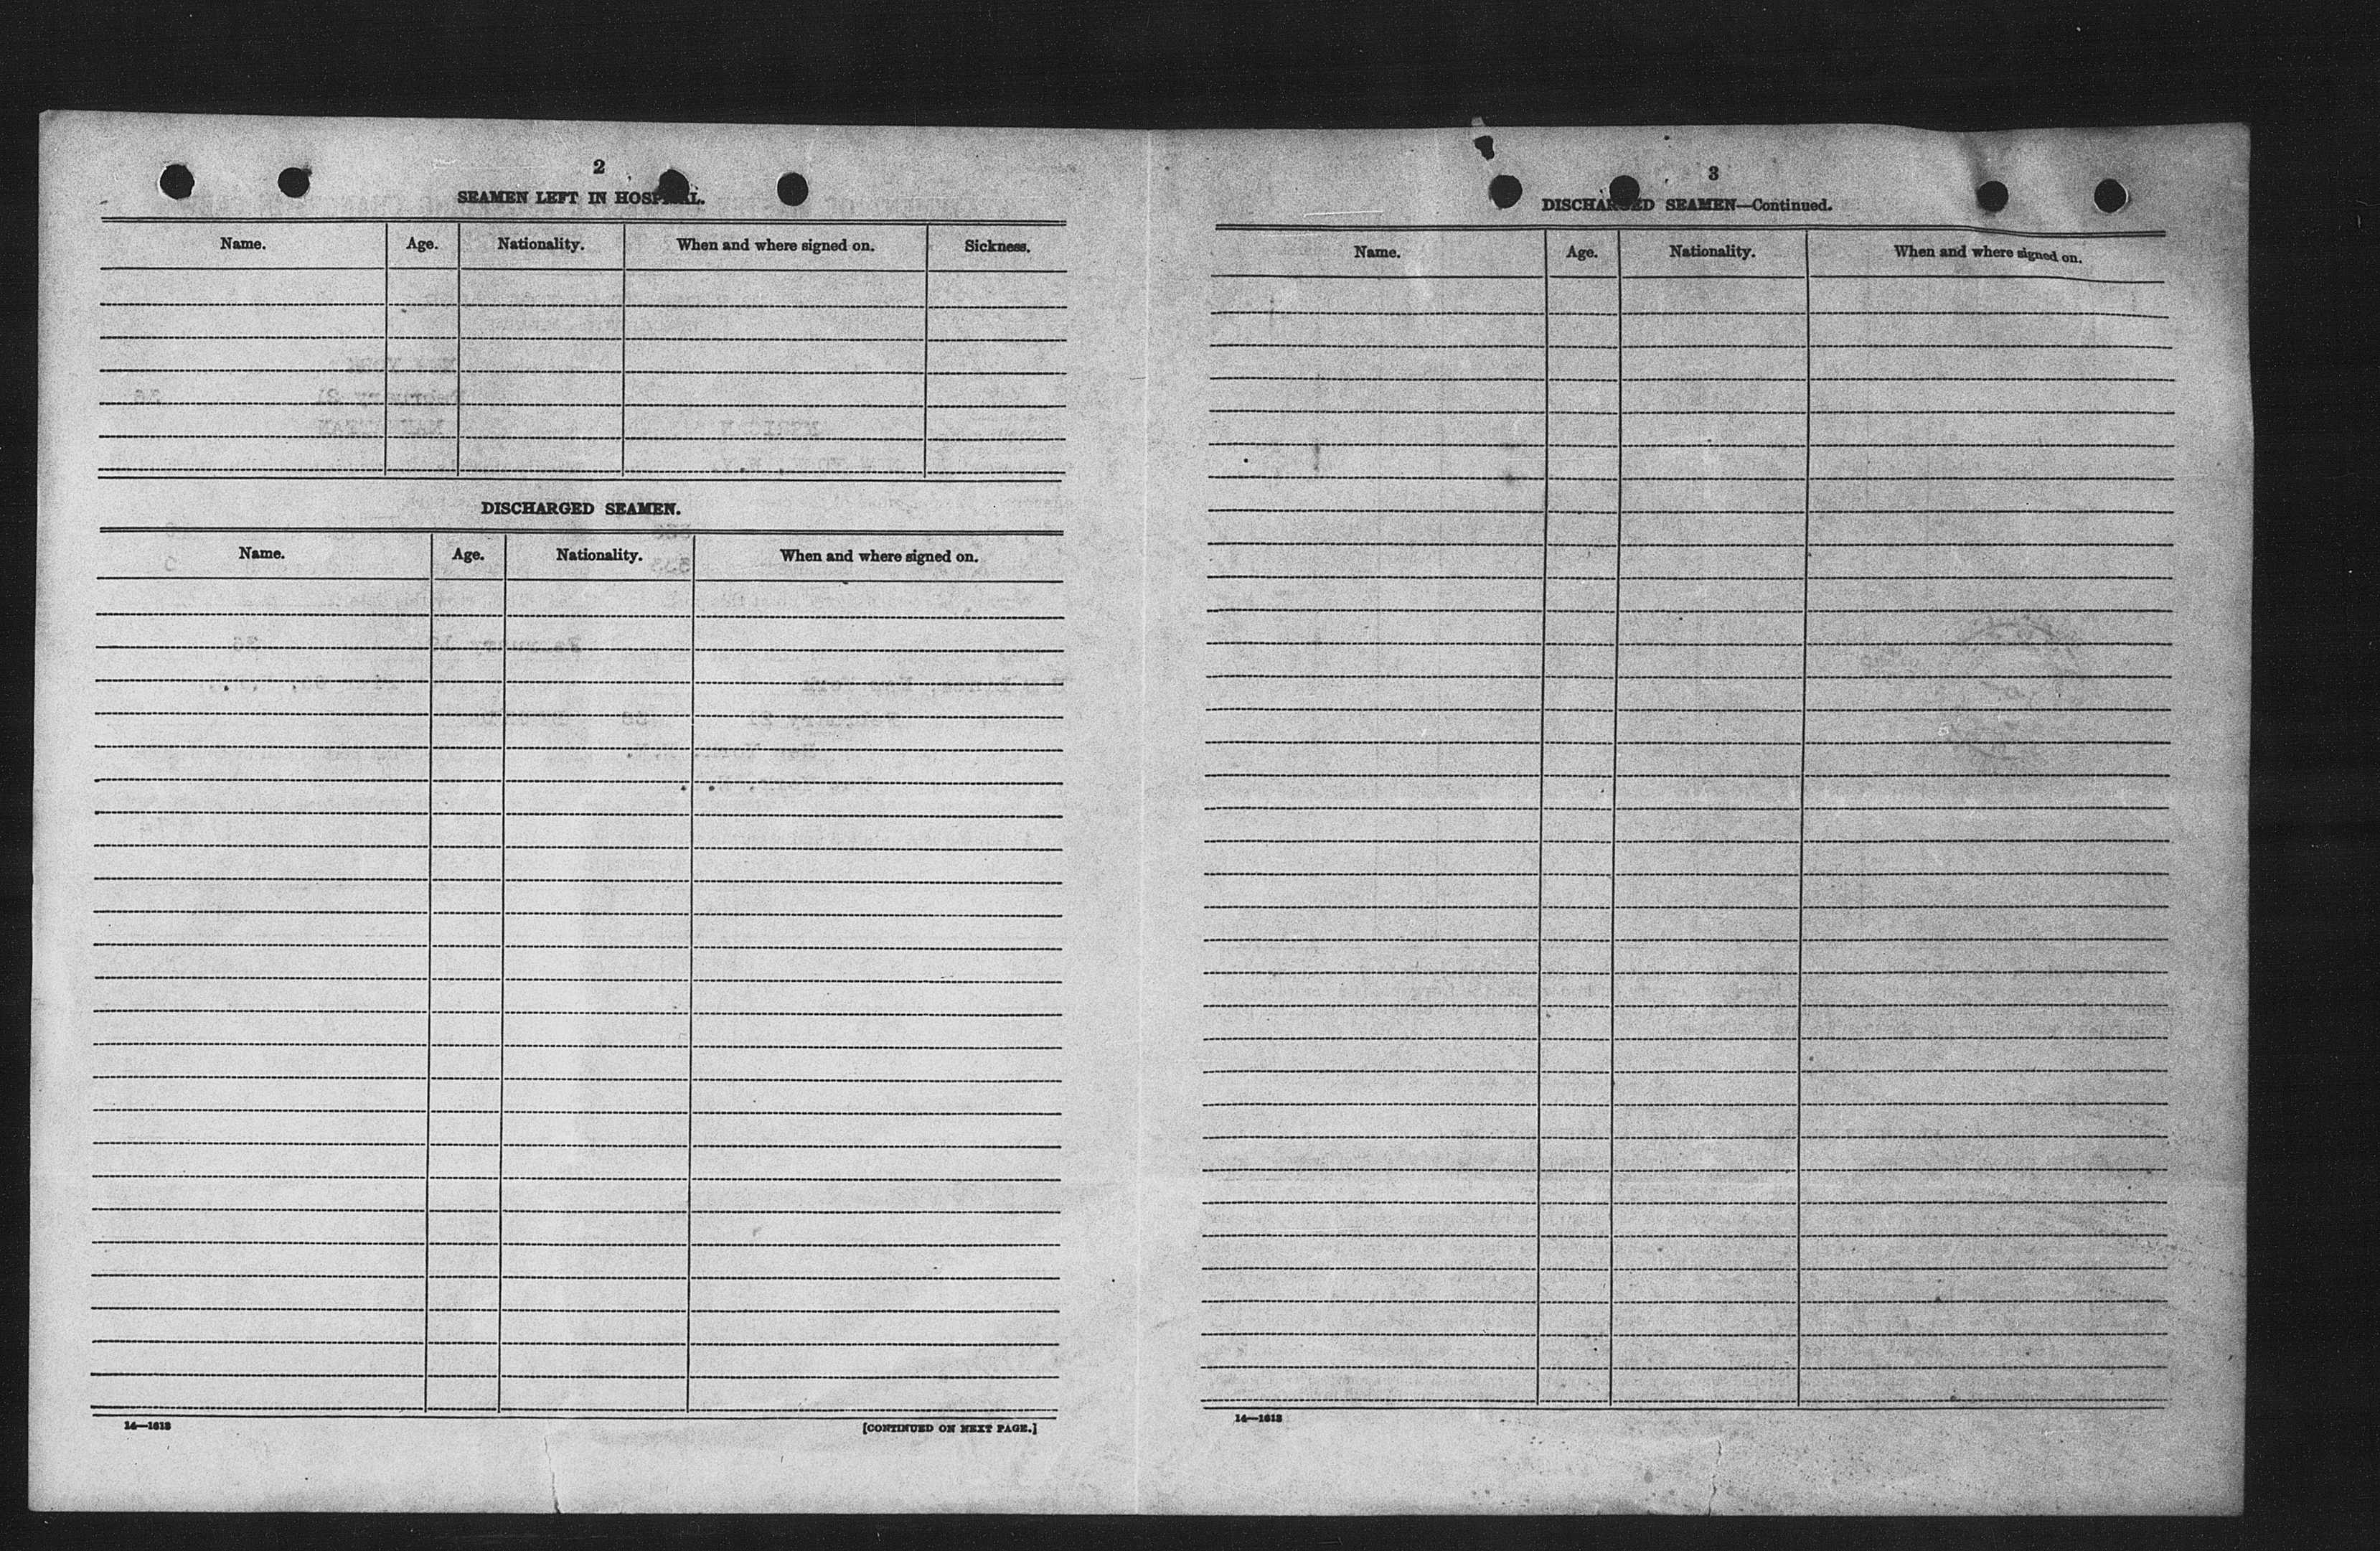 2
SEAMEN LEFT IN HOSPITAL.
Name. Age. Nationality. When and where signed on. Sickness.
DISCHARGED SEAMEN.
Name. Age. Nationality. When and where signed on.
14—1613 [CONTINUED ON NEXT PAGE.]
3
DISCHARGED SEAMEN—Continued.
Name. Age. Nationality. When and where signed on.
14—1613